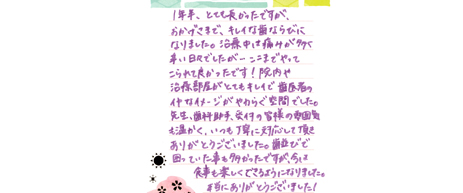 1年半、とても長かったですが、
おかげさまで、キレイな歯ならびに
なりました。治療中は痛みが多く
辛い日々でしたが ここまでやって
こられて良かったです！院内や
治療部屋がとてもキレイで 歯医者の
イヤなイメージがやわらぐ空間でした。
先生、歯科助手、受付の皆様の雰囲気
も温かく、いつも丁寧に対応して頂き
ありがとうございました。歯並びで
困っていた事も多かったですが、今は
食事も楽しくできるようになりました。
本当にありがとうございました！